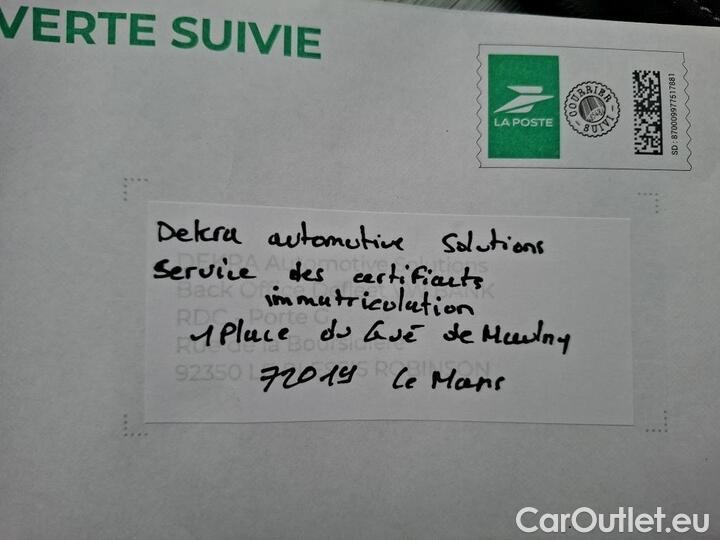 VERTE SUIVIE
LA POSTE
COURRIER SUIVI
SD: 87000997751788 1
Dekra automotive Solutions
DEKRA Automotive Solutions
Service des certificats
Back Office
BANK
immatriculation
RDC - Porte G
1 Place du Gué de Maulny
Rue de la Boursidière
72019 Le Mans
92350 L ROBINSON
CarOutlet.eu